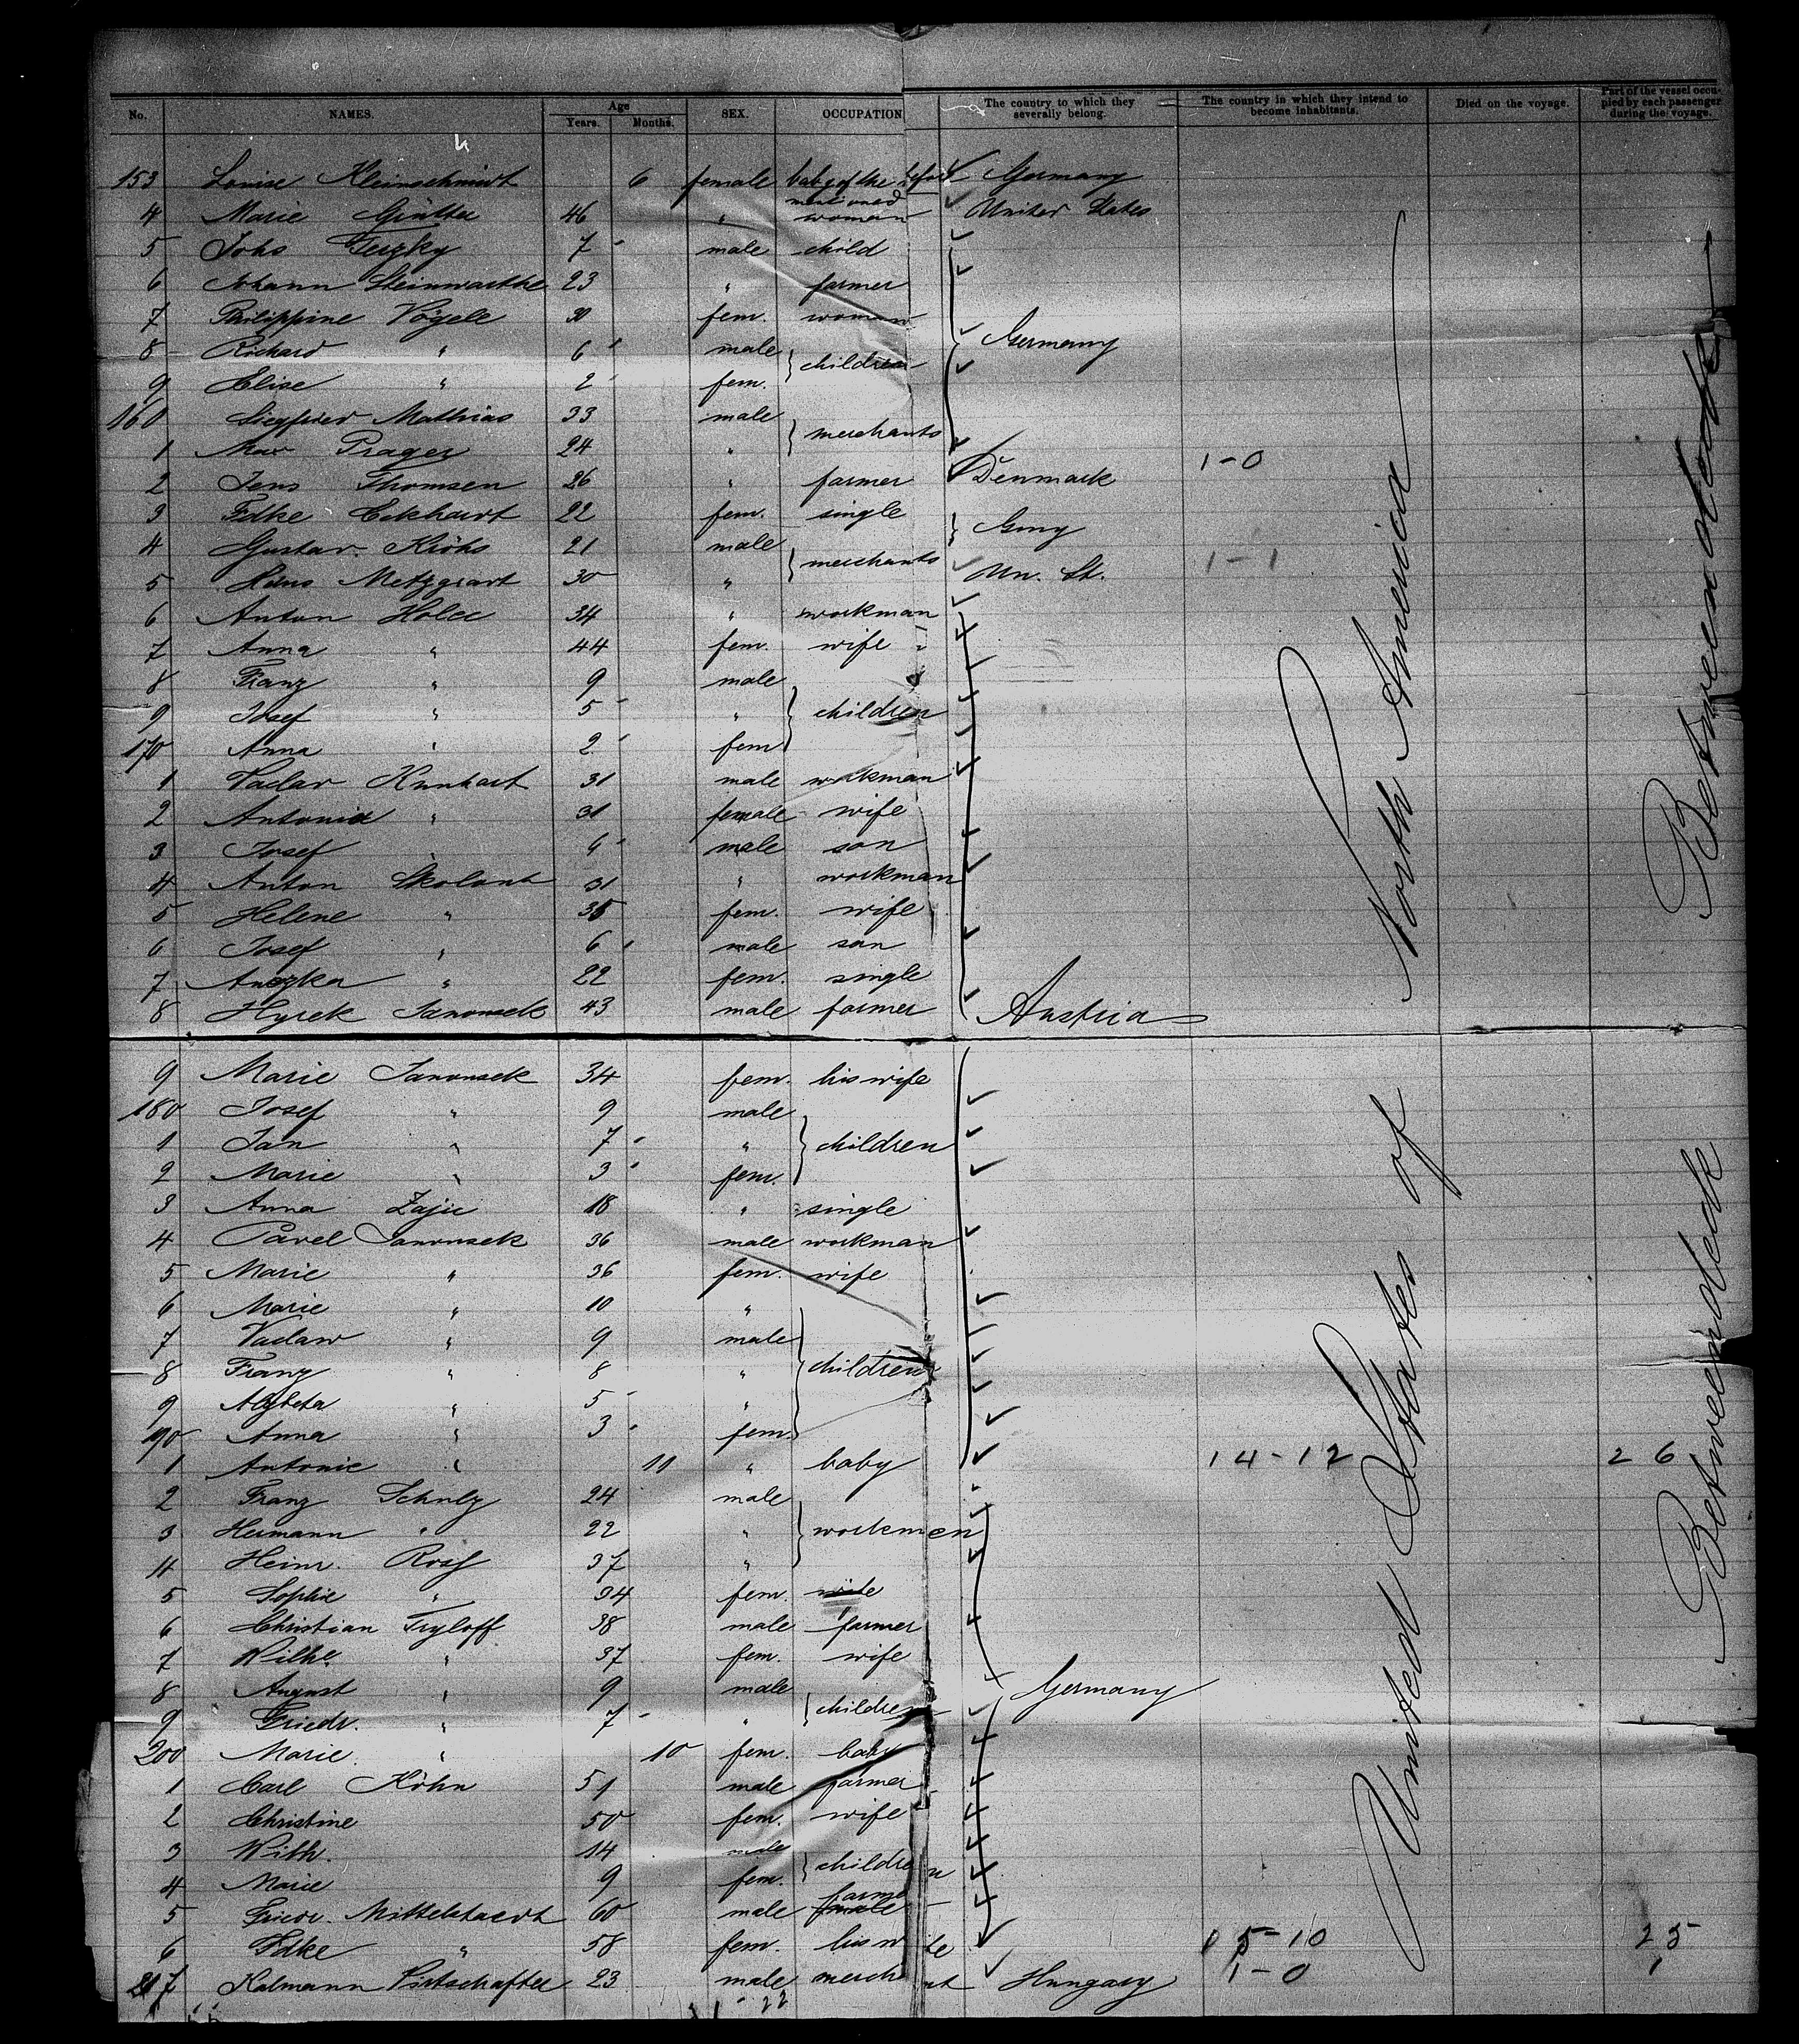 No. NAMES. Age Years. Months. SEX. OCCUPATION The country to which they severally belong. The country in which they intend to become inhabitants. Died on the voyage. Part of the vessel occupied by each passenger during the voyage.
153 Louise Kleinschmidt 6 female baby of the before mentioned Germany
4 Marie Günther 46 " woman United States
5 Johs 7 male child
6 Johann Steinwarthe 23 " farmer
7 Philippine Vögele 30 fem. woman Germany
8 Richard " 6 male children
9 Elise " 2 fem.
160 Siegfried Mathias 33 male merchants
1 Max Prager 24 "
2 Jens Thomsen 26 " farmer Denmark 1-0
3 Fdke Eckhardt 22 fem. single Gmy
4 Gustav Kröhs 21 male merchants
5 Hans 30 " Un. St. 1-1
6 Anton Holec 34 " workman
7 Anna " 44 fem. wife
8 Franz " 9 male children
9 Josef " 5 "
170 Anna " 2 fem
1 Vaclav Kunhart 31 male workman
2 Antonia " 31 female wife
3 Josef 6 male son
4 Anton Skolout 31 " workman
5 Helene " 35 fem. wife
6 Josef " 6 male son
7 Anezka " 22 fem. single
8 Hynek Janousek 43 male farmer Austria
9 Marie Janousek 34 fem. his wife
180 Josef " 9 male
1 Jan " 7 " children
2 Marie " 3 fem.
3 Anna Zajic 18 " single
4 Pavel Janousek 36 male workman
5 Marie " 36 fem. wife
6 Marie " 10 "
7 Vaclaw " 9 male
8 Franz " 8 " children
9 Alzbeta " 5 "
190 Anna " 3 fem.
1 Antonie " 11 " baby 14-12 26
2 Franz Schulz 24 male
3 Hermann " 22 " workmen
4 Heinr. 37 "
5 Sophie " 34 fem. wife
6 Christian Tryloff 38 male farmer
7 Wilhe. " 37 fem. wife
8 August " 9 male Germany
9 Friedr. " 7 " children
200 Marie " 10 fem. baby
1 Carl Köhn 51 male farmer
2 Christine 50 fem. wife
3 Wilh. 14 male children
4 Marie 9 fem.
5 Friedr. Mittelstaedt 60 male farmer
6 Fdke " 58 fem. his wife 15-10 25
207 Kalmann Wirtschafter 23 male merchant Hungary 1-0 1
United States of North America
Between deck
Betweendeck